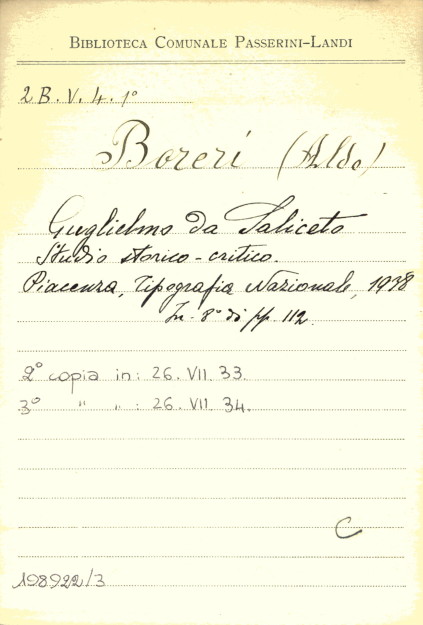 BIBLIOTECA COMUNALE PASSERINI-LANDI
2 B. V. 4. 1°
Boreri (Aldo)
Guglielmo da Saliceto
Studio storico-critico.
Piacenza, Tipografia Nazionale, 1938
In-8° di pp. 112.
2° copia in: 26. VII. 33.
3° " " : 26. VII. 34.
C
198922/3